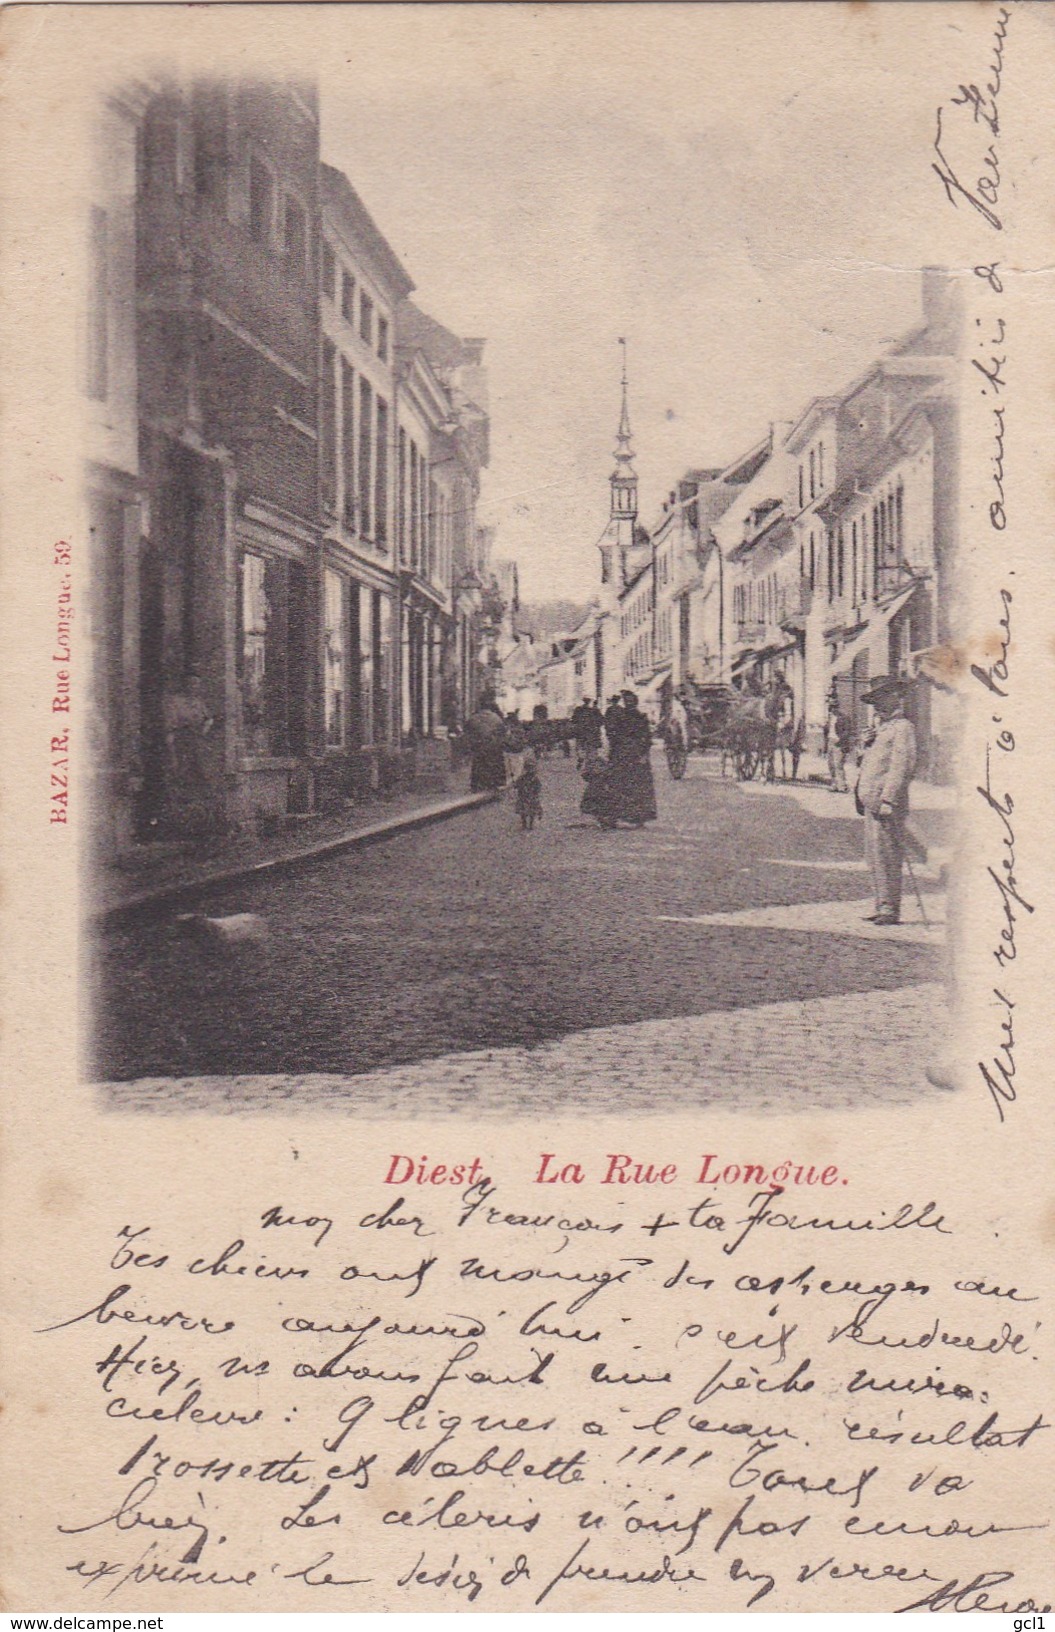 BAZAR, Rue Longue, 59
Diest. La Rue Longue.
mon cher François + ta Famille
Tes chiens ont mangé des asperges au
beurre aujourd'hui c'est vendredi.
Hier, ns avons fait une pêche mira-
culeuse : 9 lignes à l'eau. résultat
1 rossette et 1 ablette !!!! Tout va
bien. Les céleris n'ont pas encore
exprimé le désir de prendre un verre
mes respects à Pares. amitiés de
www.delcampe.net
gcl1